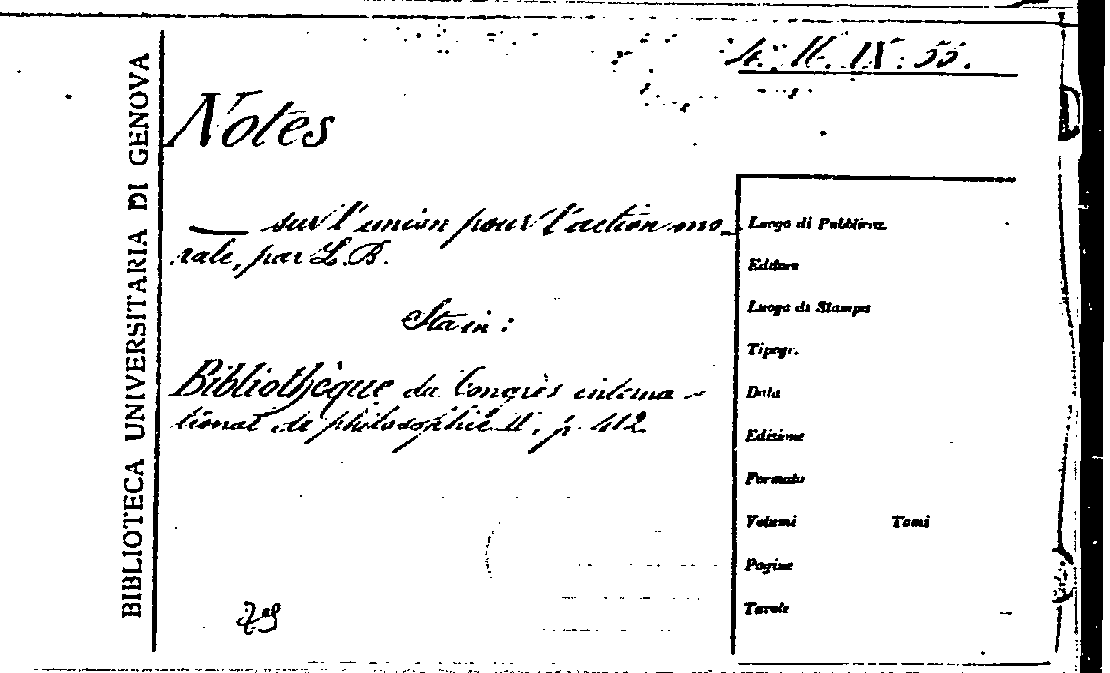 4. H. IX. 55.
BIBLIOTECA UNIVERSITARIA DI GENOVA
Notes
— sur l'union pour l'action mo-
rale, par L. B.
Sta in:
Bibliothèque du Congrès interna-
tional de philosophie II, p. 412
Luogo di Pubblicaz.
Editore
Luogo di Stampa
Tipogr.
Data
Edizione
Formato
Volumi Tomi
Pagine
Tavole